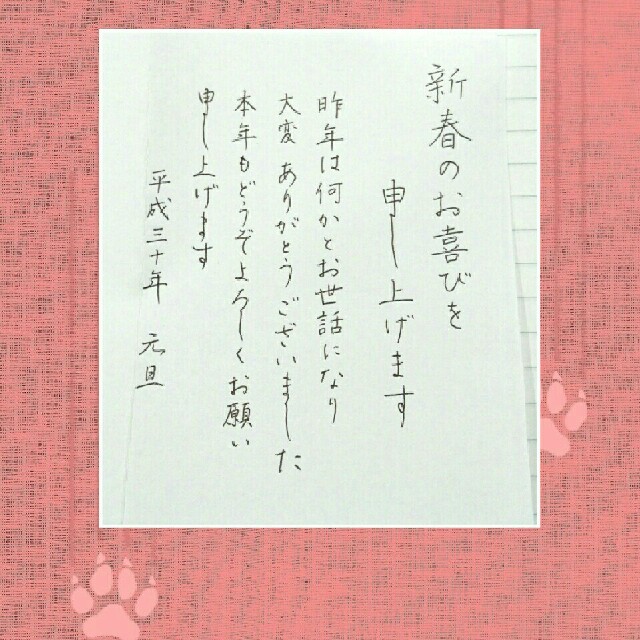 新春のお喜びを
申し上げます
昨年は何かとお世話になり
大変ありがとうございました
本年もどうぞよろしくお願い
申し上げます
平成三十年 元旦